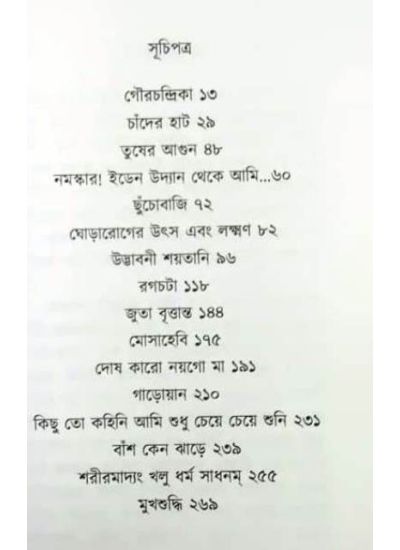 সূচিপত্র
গৌরচন্দ্রিকা ১৩
চাঁদের হাট ২৯
তুষের আগুন ৪৮
নমস্কার! ইডেন উদ্যান থেকে আমি...৬০
ছুঁচোবাজি ৭২
ঘোড়ারোগের উৎস এবং লক্ষ্মণ ৮২
উদ্ভাবনী শয়তানি ৯৬
রগচটা ১১৮
জুতা বৃত্তান্ত ১৪৪
মোসাহেবি ১৭৫
দোষ কারো নয়গো মা ১৯১
গাড়োয়ান ২১০
কিছু তো কহিনি আমি শুধু চেয়ে চেয়ে শুনি ২৩১
বাঁশ কেন ঝাড়ে ২৩৯
শরীরমাদ্যং খলু ধর্ম সাধনম্ ২৫৫
মুখশুদ্ধি ২৬৯